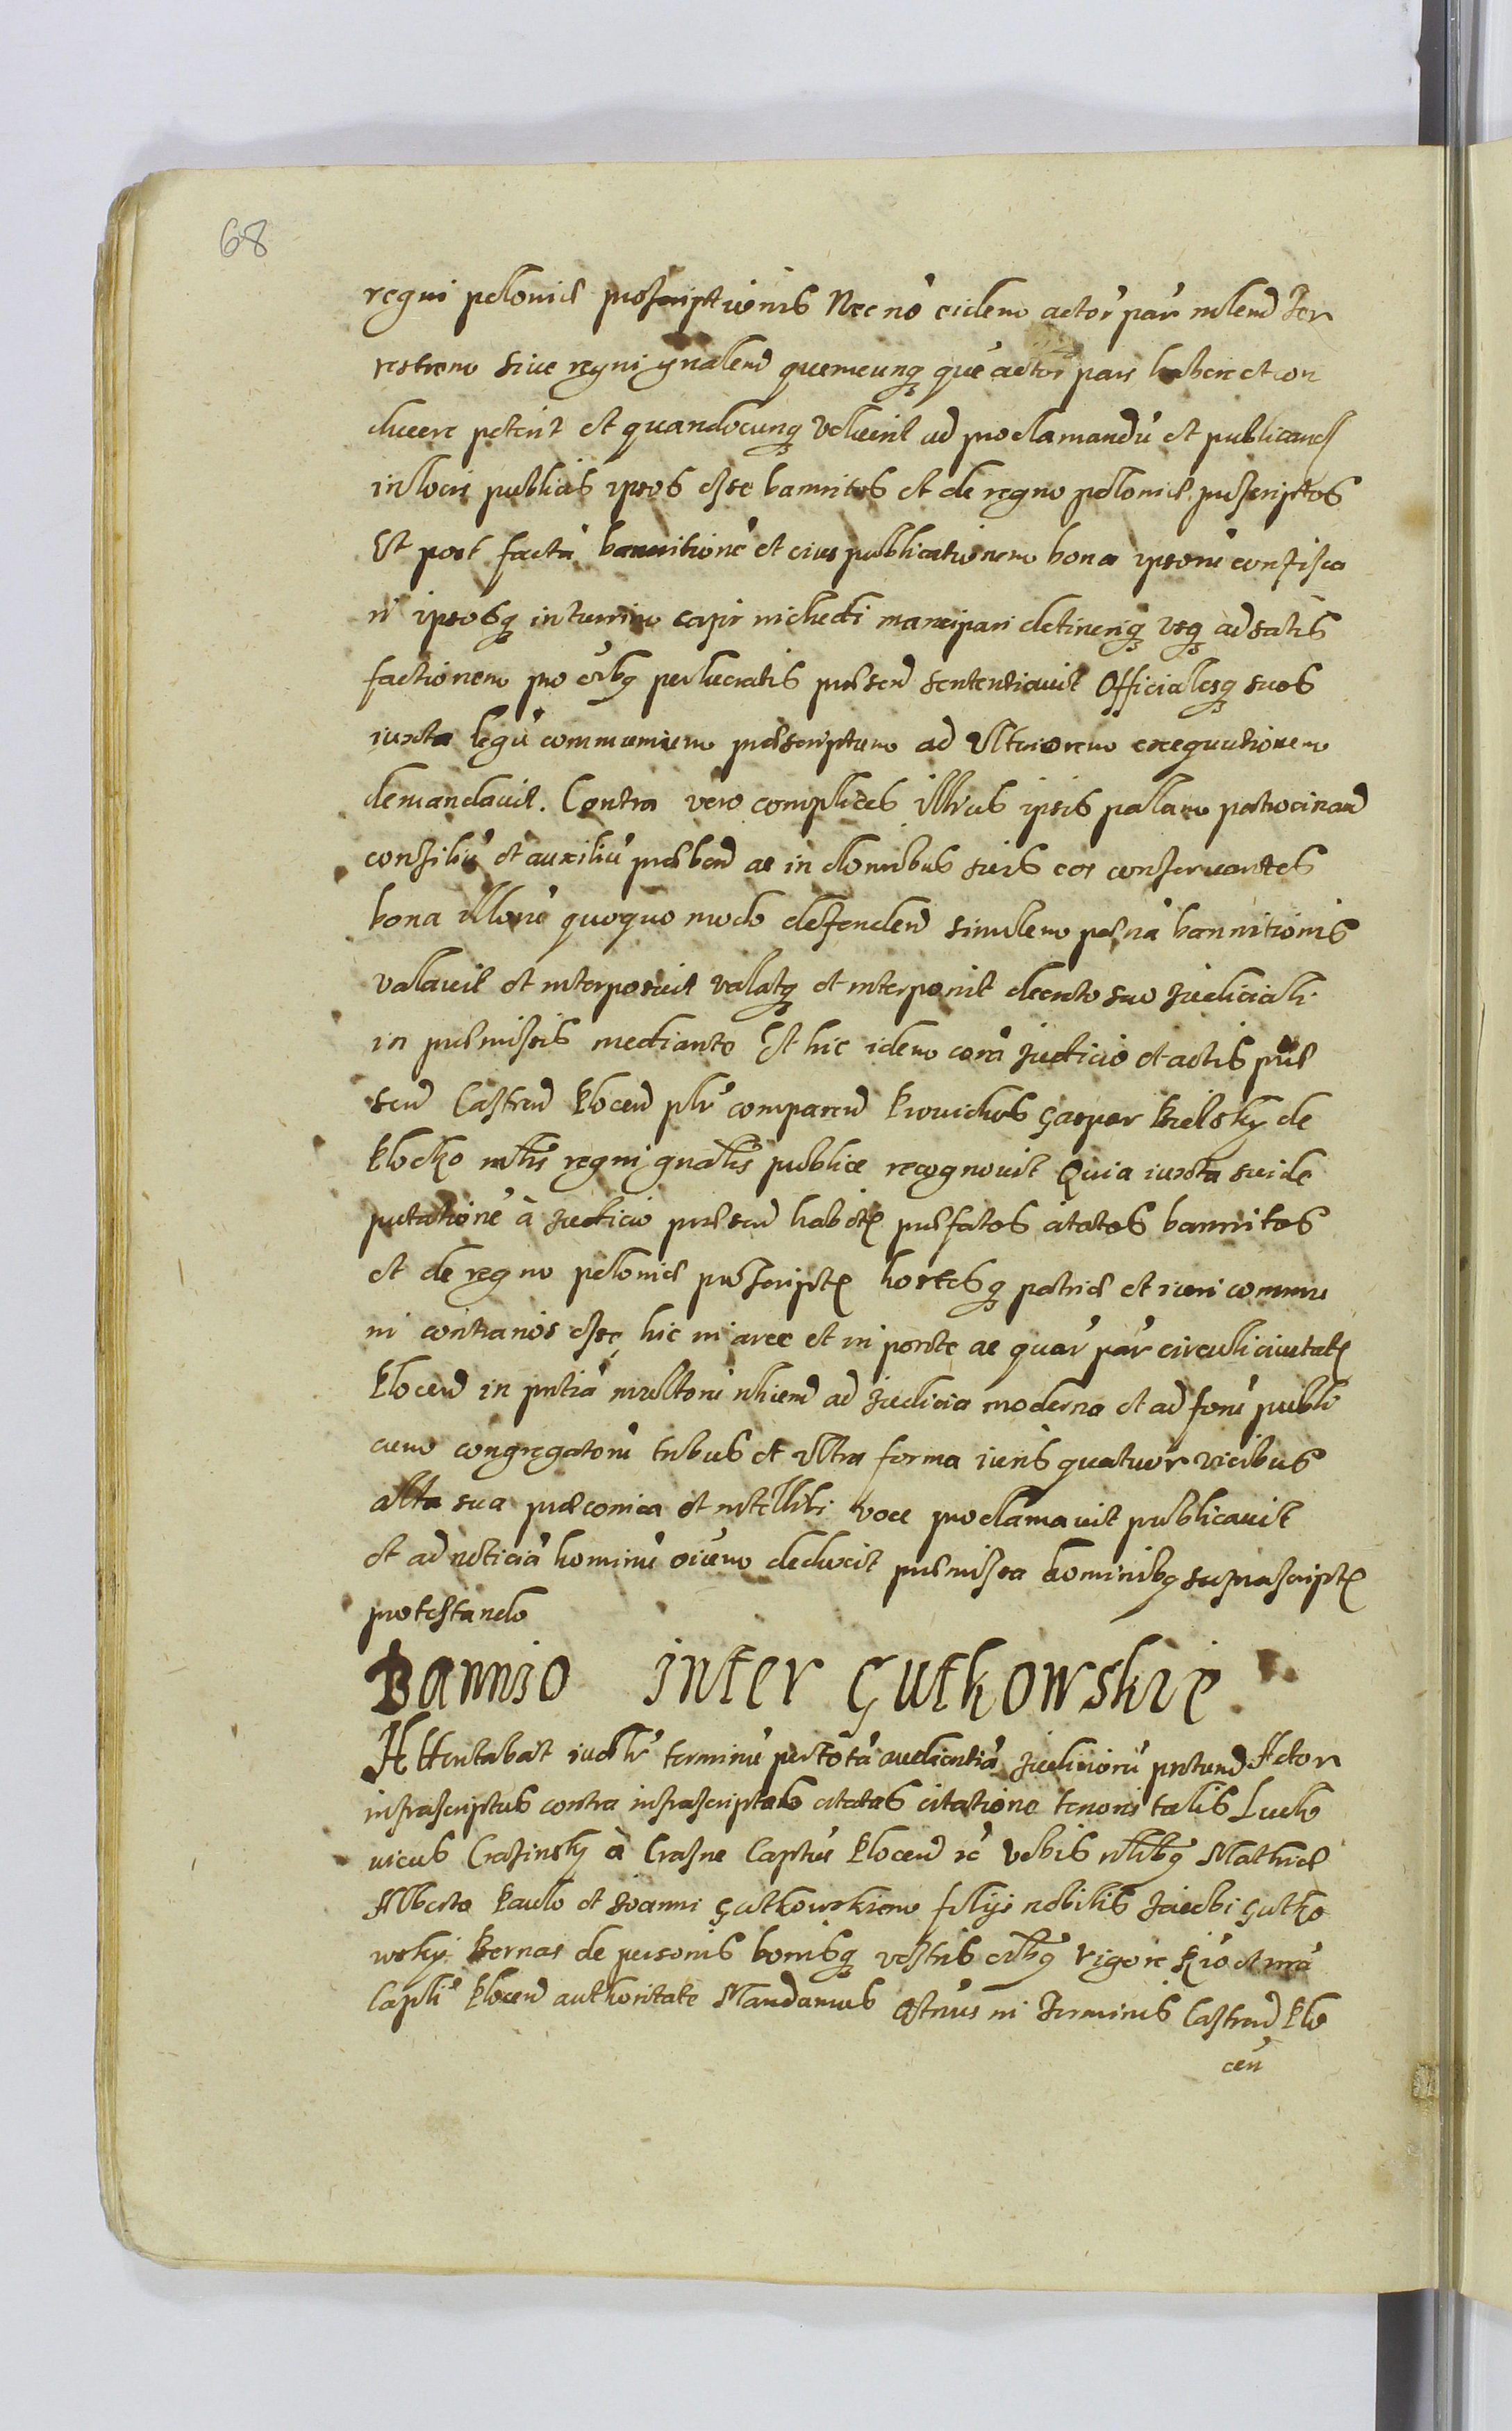 68
regni poloniæ proscriptionis Nec nō eidem actor' par' mlend Ter
restrem sive regni gnalem quemcunq que actor pars habere et con
ducere poterit et quandocunq voluerit ad proclamandū et publicand
in locis publicis ipsos esse bannitos et de regno poloniæ proscriptos
Et post factā bannitionē et eius publicationem bona ipsorū confisca
ri ipsosq in turrim capi mancipari detineriq vsq ad satis
factionem pro oībq perlucratis præsen sententiavit Officialesq suos
iuxta legū communium præscriptum ad vlteriorem exequutionem
demandavit. Contra vero complices illius ipsis palam patrocinan
consiliū et auxiliū præben ac in domibus suis eos conservantes
bona illorū quoquo modo defenden similem pœnā bannitionis
valavit et interposuit valatq et interponit decreto suo Judiciali
in præmissis mediante Et hic idem corā Judicio et actis præ
sen Castren Plocen plr' comparen Providus Gaspar Bielsky de
Plocko mlis regni gnalis publice recognovit Quia iuxta sui de
putationē à Judicio præsen habitę præfatos citatos bannitos
et de regno poloniæ proscriptę hostesq patriæ et iuri commu
ni contrarios esse hic in arce et in ponte ac quar' par' circuli civitatę
Plocen in pntiā multorū nbium ad Judicia moderna et ad forū publi
cum congregatorū tribus et vltra forma iuris quatuor vicibus
alta sua præconica et intellibi voce proclamavit publicavit
et ad noticiā hominū oium deduxit præmissa hominibq suprascriptę
protestando
Bannio inter Gutkowskie
Attentabat iudlr' terminū per totā audientiā Judiciorū pntium Actor
infrascriptus contra infrascriptos citatos citatione tenoris talis Ludo
vicus Crasinsky à Crasne Captūs Plocen rc Vobis nlibq Mathiæ
Alberto Paulo et Joanni Gutkowskiem filijs nobilis Jacobi Gutko
wsky Bernas de personis bonisq vestris oībq Vigore Rīo et nrā
Capli' Plocen authoritate Mandamus qtnūs in Terminis Castren Plo
cen